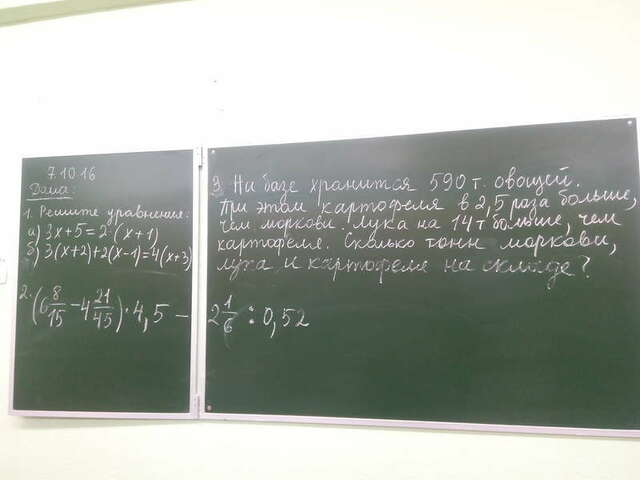 7.10.16
Дома:
1. Решите уравнение:
а) 3x+5=2·(x+1)
б) 3(x+2)+2(x-1)=4(x+3)
2. (6 8/15 - 4 21/45)·4,5 - 2 1/6 : 0,52
3. На базе хранится 590 т. овощей.
При этом картофеля в 2,5 раза больше,
чем моркови. Лука на 14 т больше, чем
картофеля. Сколько тонн моркови,
лука и картофеля на складе?